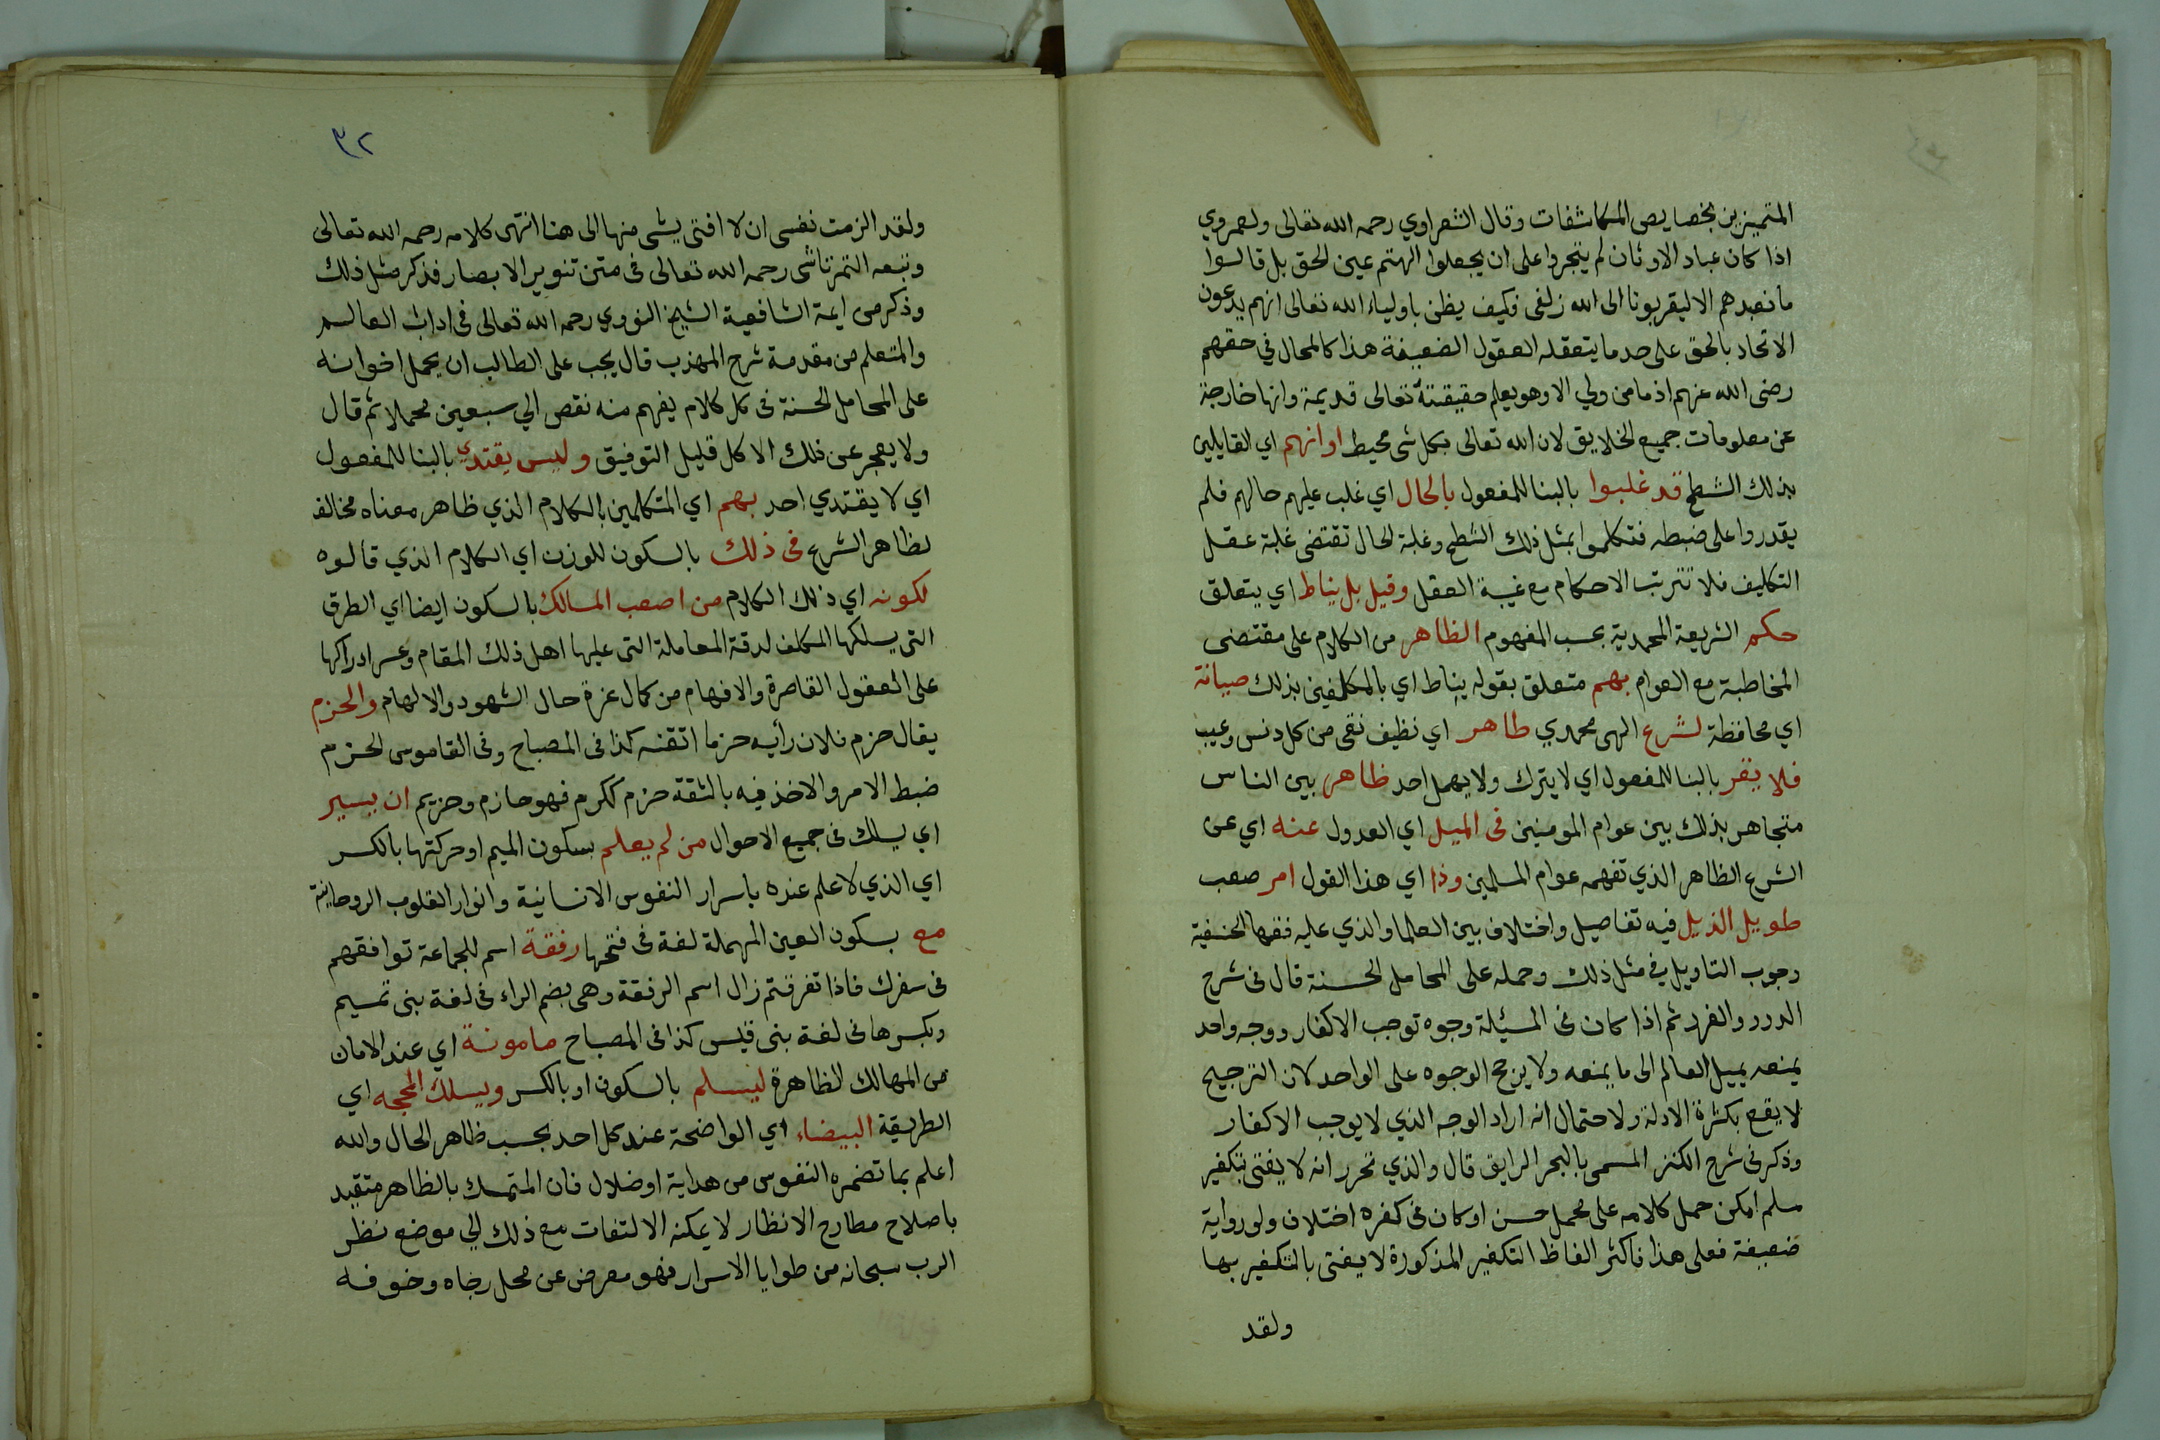 المتميزين بخصايص المكاشفات وقال الشعراوي رحمه الله تعالى ولعمري
اذا كان عباد الاوثان لم يتجروا على ان يجعلوا الهتهم عين الحق بل قالوا
ما نعبدهم الا ليقربونا الى الله زلفى فكيف يظن باولياء الله تعالى انهم يدعون
الاتحاد بالحق على حد ما يتعقله العقول الضعيفة هذا كالمحال في حقهم
رضى الله عنهم اذ ما من ولي الا وهو يعلم حقيقته تعالى قديمة وانها خارجة
عن معلومات جميع الخلايق لان الله تعالى بكل شى محيط او انهم اي القايلين
بذلك الشطح قد غلبوا بالبنا للمفعول بالحال اي غلب عليهم حالهم فلم
يقدروا على ضبطه فتكلموا بمثل ذلك الشطح وغلبة الحال تقتضى غلبة عقل
التكليف فلا تترتب الاحكام مع غيبة العقل وقيل بل يناط اي يتعلق
حكم الشريعة المحمدية بحسب المفهوم الظاهر من الكلام على مقتضى
المخاطبة مع العوام بهم متعلق بقوله يناط اي بالمكلفين بذلك صيانة
اي محافظة لشرع الهى محمدي طاهر اي نظيف نقى من كل دنس وعيب
فلا يقر بالبنا للمفعول اي لا يترك ولا يهمل احد ظاهر بين الناس
متجاهر بذلك بين عوام المومنين فى الميل اي العدول عنه اي عن
الشرع الظاهر الذي تفهمه عوام المسلمين وذا اي هذا القول امر صعب
طويل الذيل فيه تفاصيل واختلاف بين العلما والذي عليه فقها الحنفية
وجوب التاويل في مثل ذلك وحمله على المحامل الحسنة قال فى شرح
الدرر والغرر ثم اذا كان فى المسئلة وجوه توجب الاكفار ووجه واحد
يمنعه يميل العالم الى ما يمنعه ولا يرجح الوجوه على الواحد لان الترجيح
لا يقع بكثرة الادلة ولاحتمال انه اراد الوجه الذي لا يوجب الاكفار
وذكر فى شرح الكنز المسمى بالبحر الرايق قال والذي تحرر انه لا يفتى بتكفير
مسلم امكن حمل كلامه على محمل حسن او كان فى كفره اختلاف ولو رواية
ضعيفة فعلى هذا فاكثر الفاظ التكفير المذكورة لا يفتى بالتكفير بها
ولقد
٣٢
ولقد الزمت نفسى ان لا افتى بشى منها الى هنا انتهى كلامه رحمه الله تعالى
وتبعه التمرتاشى رحمه الله تعالى فى متن تنوير الابصار فذكر مثل ذلك
وذكر من ايمة الشافعية الشيخ النووي رحمه الله تعالى فى اداب العالم
والمتعلم من مقدمة شرح المهذب قال يجب على الطالب ان يحمل اخوانه
على المحامل الحسنة فى كل كلام يفهم منه نقص الي سبعين محملا ثم قال
ولا يعجز عن ذلك الا كل قليل التوفيق وليس يقتدي بالبنا للمفعول
اي لا يقتدي احد بهم اي المتكلمين بالكلام الذي ظاهر معناه مخالف
لظاهر الشرع فى ذلك بالسكون للوزن اي الكلام الذي قالوه
لكونه اي ذلك الكلام من اصعب المسالك بالسكون ايضا اي الطرق
التى يسلكها المكلف لدقة المعاملة التى عليها اهل ذلك المقام وعسر ادراكها
على العقول القاصرة والافهام من كمال عزة حال الشهود والالهام والحزم
يقال حزم فلان رأيه حزما اتقنه كذا فى المصباح وفى القاموس الحزم
ضبط الامر والاخذ فيه بالثقة حزم ككرم فهو حازم وحزيم ان يسير
اي يسلك فى جميع الاحوال من لم يعلم بسكون الميم او حركتها بالكسر
اي الذي لا علم عنده باسرار النفوس الانسانية وانوار القلوب الروحانية
مع بسكون العين المهملة لغة فى فتحها رفقة اسم للجماعة توافقهم
فى سفرك فاذا تفرقتم زال اسم الرفقة وهى بضم الراء فى لغة بنى تميم
وبكسرها فى لغة بنى قيس كذا فى المصباح مامونة اي عند الامان
من المهالك الظاهرة ليسلم بالسكون او بالكسر ويسلك المحجه اي
الطريقة البيضاء اي الواضحة عند كل احد بحسب ظاهر الحال والله
اعلم بما تضمره النفوس من هداية او ضلال فان المتمسك بالظاهر متقيد
باصلاح مطارح الانظار لا يمكنه الالتفات مع ذلك الي موضع نظر
الرب سبحانه من طوايا الاسرار فهو معرض عن محل رجاه وخوفه